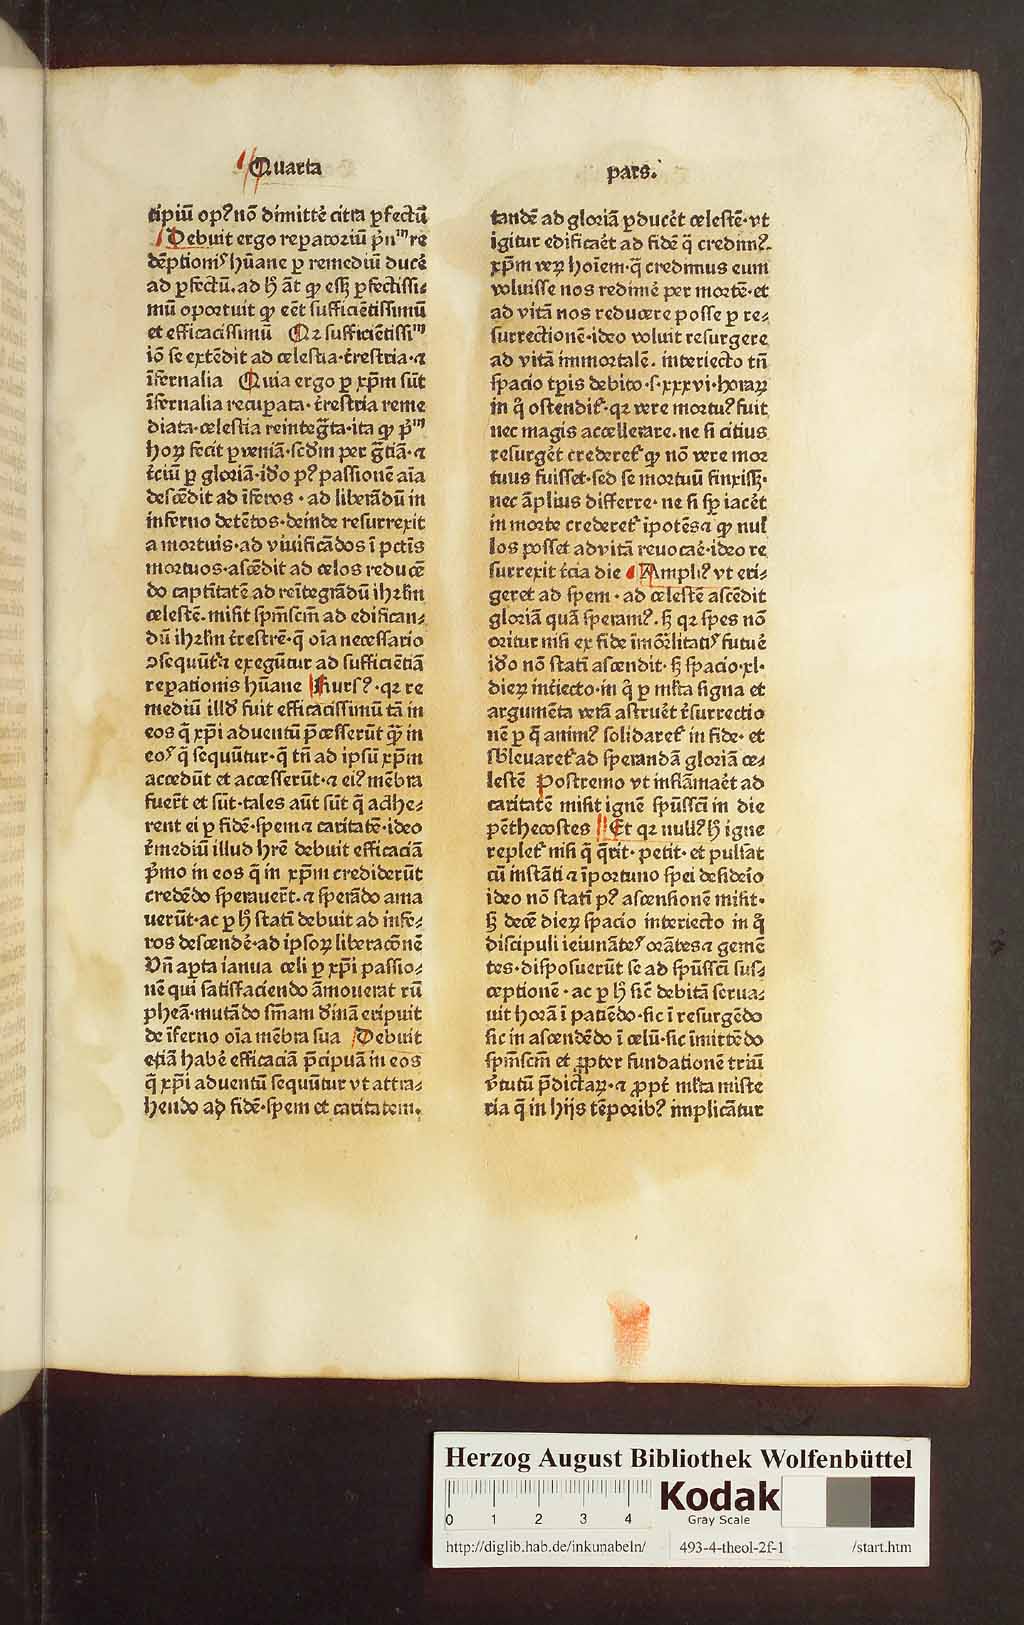 Quarta
pars.
cipiū op? nō dimittē citra ꝑfectū
Debuit ergo reparatoriū pͥnᵐ re
dēptionis hūane ꝑ remediū ducē
ad ꝑfectū. ad hͦ āt ꝙ eſſꝫ ꝑfectiſſi⸗
mū oportuit ꝙ eēt ſufficiētiſſimū
et efficaciſſimū Qꝛ ſufficiētiſſiᵐ
iō ſe extēdit ad celeſtia·t̄reſtria·⁊
īfernalia Quia ergo ꝑ xp̄m ſūt
īfernalia recuꝑata·t̄reſtria reme
diata·celeſtia reintegͣta·ita ꝙ pͥᵐ
hoꝝ fecit ꝑ veniā·ſcd̄m per gͣtiā·⁊
t̄ciū ꝑ gloriā·idͦo p? paſſionē aīa
deſcēdit ad īferos·ad liberādū in
inferno detētos·deinde reſurrexit
a mortuis·ad viuificādos ī pctīs
mortuos·aſcēdit ad celos reducē
do captītatē ad reītegrādū ihꝛlm̄
celeſtē. miſit ſpm̄ſcm̄ ad edifican⸗
dū ihꝛlm̄ t̄reſtrē·q̄ oīa neceſſario
ↄſequūt᷑ ⁊ exegūtur ad ſufficiētiā
reꝑationis hūane Rurſ?·qꝛ re
mediū illdͦ fuit efficaciſſimū tā in
eos q̄ xp̄i aduentū p̄ceſſerūt ꝙ̄ in
eos q̄ ſequūtur·q̄ tn̄ ad ipſū xp̄m
accedūt et acceſſerūt·⁊ ei? mēbra
fuer̄t et ſūt·tales aūt ſūt q̄ adhe⸗
rent ei ꝑ fidē·ſpem ⁊ caritatē·ideo
r̄mediū illud hr̄e debuit efficaciā
pͥmo in eos q̄ in xp̄m crediderūt
credēdo ſperauer̄t·⁊ ſperādo ama
uerūt·ac ꝑ hͦ ſtatī debuit ad infe⸗
ros deſcendē·ad ipſoꝝ liberacōnē
Vn̄ aꝑta ianua celi ꝑ xp̄i paſſio⸗
nē qui ſatiſfaciendo āmouerat rū
pheā·mutādo ſm̄am dīnā eripuit
de īferno oīa mēbra ſua Debuit
etiā habē efficaciā p̄cipuā in eos
q̄ xp̄i aduentū ſequūtur vt attra⸗
hendo ad fidē·ſpem et caritatem.
tandē ad gloriā ꝑducēt celeſtē·vt
igitur edificaēt ad fidē q̄ credim?
xp̄m veꝝ hoīem·q̄ credimus eum
voluiſſe nos redimē per mortē·et
ad vitā nos reducere poſſe ꝑ re⸗
ſurrectionē·ideo voluit reſurgere
ad vitā immortalē. interiecto tn̄
ſpacio tꝑis debito·ſ·xxxvi·horaꝝ
in q̄ oſtendit᷑·qꝛ vere mortu? fuit
nec magis accellerare. ne ſi citius
reſurgēt crederet᷑ ꝙ nō vere mor
tuus fuiſſet·ſed ſe mortuū finxiſſꝫ·
nec āplius differre·ne ſi ſꝑ iacēt
in morte crederet᷑ īpotēs ⁊ ꝙ nul
los poſſet ad vitā reuocaē·ideo re
ſurrexit t̄cia die Ampli? vt eri⸗
geret ad ſpem·ad celeſtē aſcēdit
gloriā quā ſperam?. ſꝫ qꝛ ſpes nō
oritur niſi ex fide īmor̄litatis futuē
idͦo nō ſtatī aſcendit·ſꝫ ſpacio·xl·
dieꝝ int̄iecto·in q̄ ꝑ ml̄ta ſigna et
argumēta verā aſtruēt r̄ſurrectio
nē ꝑ q̄ anim? ſolidaret᷑ in fide·et
ſb̄leuaret᷑ ad ſperandā gloriā ce⸗
leſtē Poſtremo vt inflāmaēt ad
caritatē miſit ignē ſpūſſcī in die
pēthecoſtes Et qꝛ null? hͦ igne
replet᷑ niſi q̄ q̄rit·petit·et pulſat
cū inſtāti ⁊ īportuno ſpei deſideīo
ideo nō ſtatī p? aſcenſionē miſit·
ſꝫ decē dieꝝ ſpacio interiecto in q̄
diſcipuli ieiunātes orātes ⁊ gemē
tes·diſpoſuerūt ſe ad ſpūſſcī ſuſ⸗
ceptionē·ac ꝑ hͦ ſic̄ debitā ſerua⸗
uit horā ī patiēdo·ſic ī reſurgēdo
ſic in aſcendēdo ī celū·ſic īmittēdo
ſpm̄ſcm̄ et ꝓpter fundationē triū
v̄tutū p̄dictaꝝ·⁊ ꝓpt̄ ml̄ta miſte
ria q̄ in hijs tēporib? implicātur
Herzog August Bibliothek Wolfenbüttel
0 1 2 3 4
Kodak
Gray Scale
http://diglib.hab.de/inkunabeln/ 493-4-theol-2f-1 /start.htm